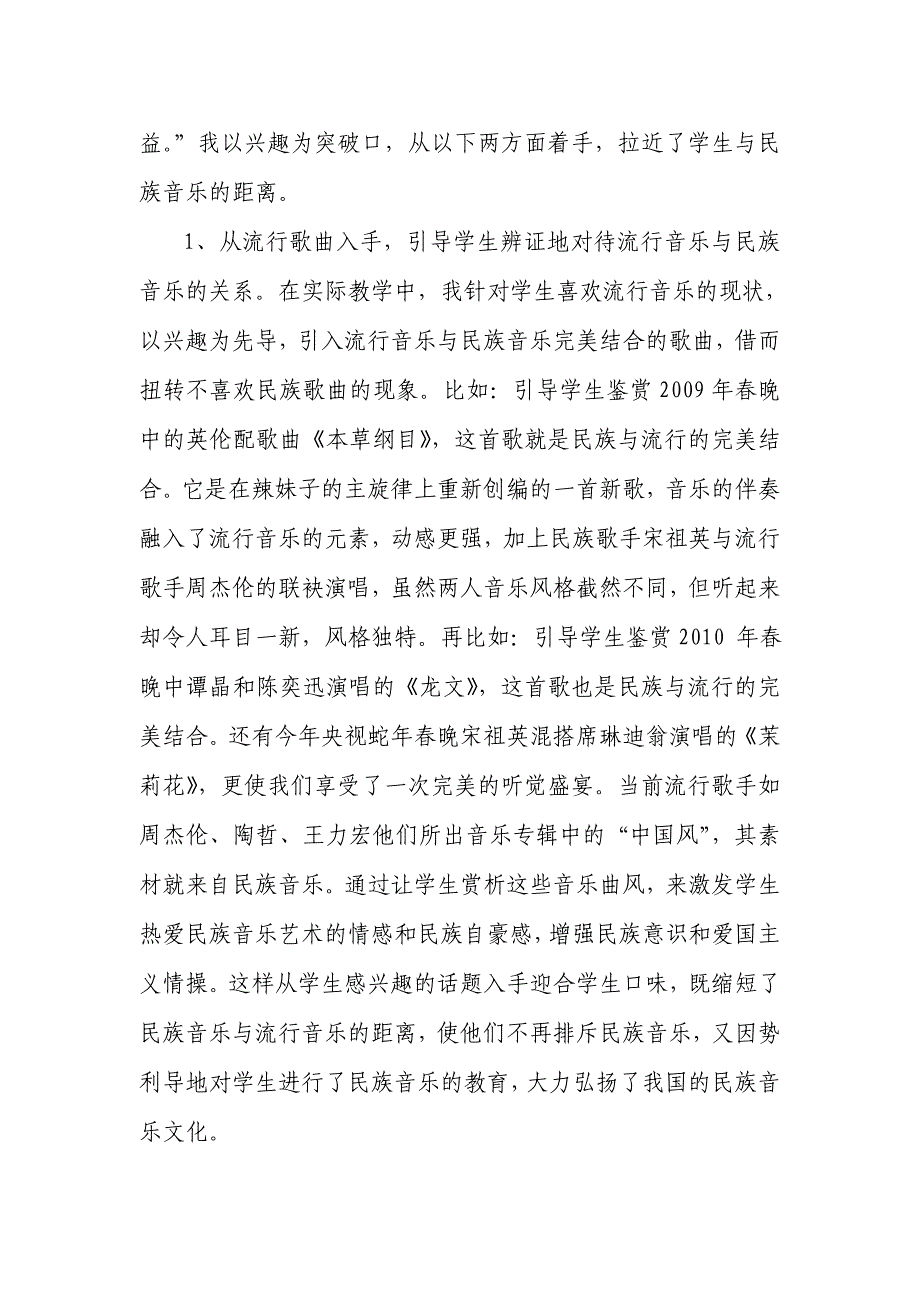 益。”我以兴趣为突破口，从以下两方面着手，拉近了学生与民
族音乐的距离。
1、从流行歌曲入手，引导学生辨证地对待流行音乐与民族
音乐的关系。在实际教学中，我针对学生喜欢流行音乐的现状，
以兴趣为先导，引入流行音乐与民族音乐完美结合的歌曲，借而
扭转不喜欢民族歌曲的现象。比如：引导学生鉴赏 2009 年春晚
中的英伦配歌曲《本草纲目》，这首歌就是民族与流行的完美结
合。它是在辣妹子的主旋律上重新创编的一首新歌，音乐的伴奏
融入了流行音乐的元素，动感更强，加上民族歌手宋祖英与流行
歌手周杰伦的联袂演唱，虽然两人音乐风格截然不同，但听起来
却令人耳目一新，风格独特。再比如：引导学生鉴赏 2010 年春
晚中谭晶和陈奕迅演唱的《龙文》，这首歌也是民族与流行的完
美结合。还有今年央视蛇年春晚宋祖英混搭席琳迪翁演唱的《茉
莉花》，更使我们享受了一次完美的听觉盛宴。当前流行歌手如
周杰伦、陶哲、王力宏他们所出音乐专辑中的“中国风”，其素
材就来自民族音乐。通过让学生赏析这些音乐曲风，来激发学生
热爱民族音乐艺术的情感和民族自豪感，增强民族意识和爱国主
义情操。这样从学生感兴趣的话题入手迎合学生口味，既缩短了
民族音乐与流行音乐的距离，使他们不再排斥民族音乐，又因势
利导地对学生进行了民族音乐的教育，大力弘扬了我国的民族音
乐文化。